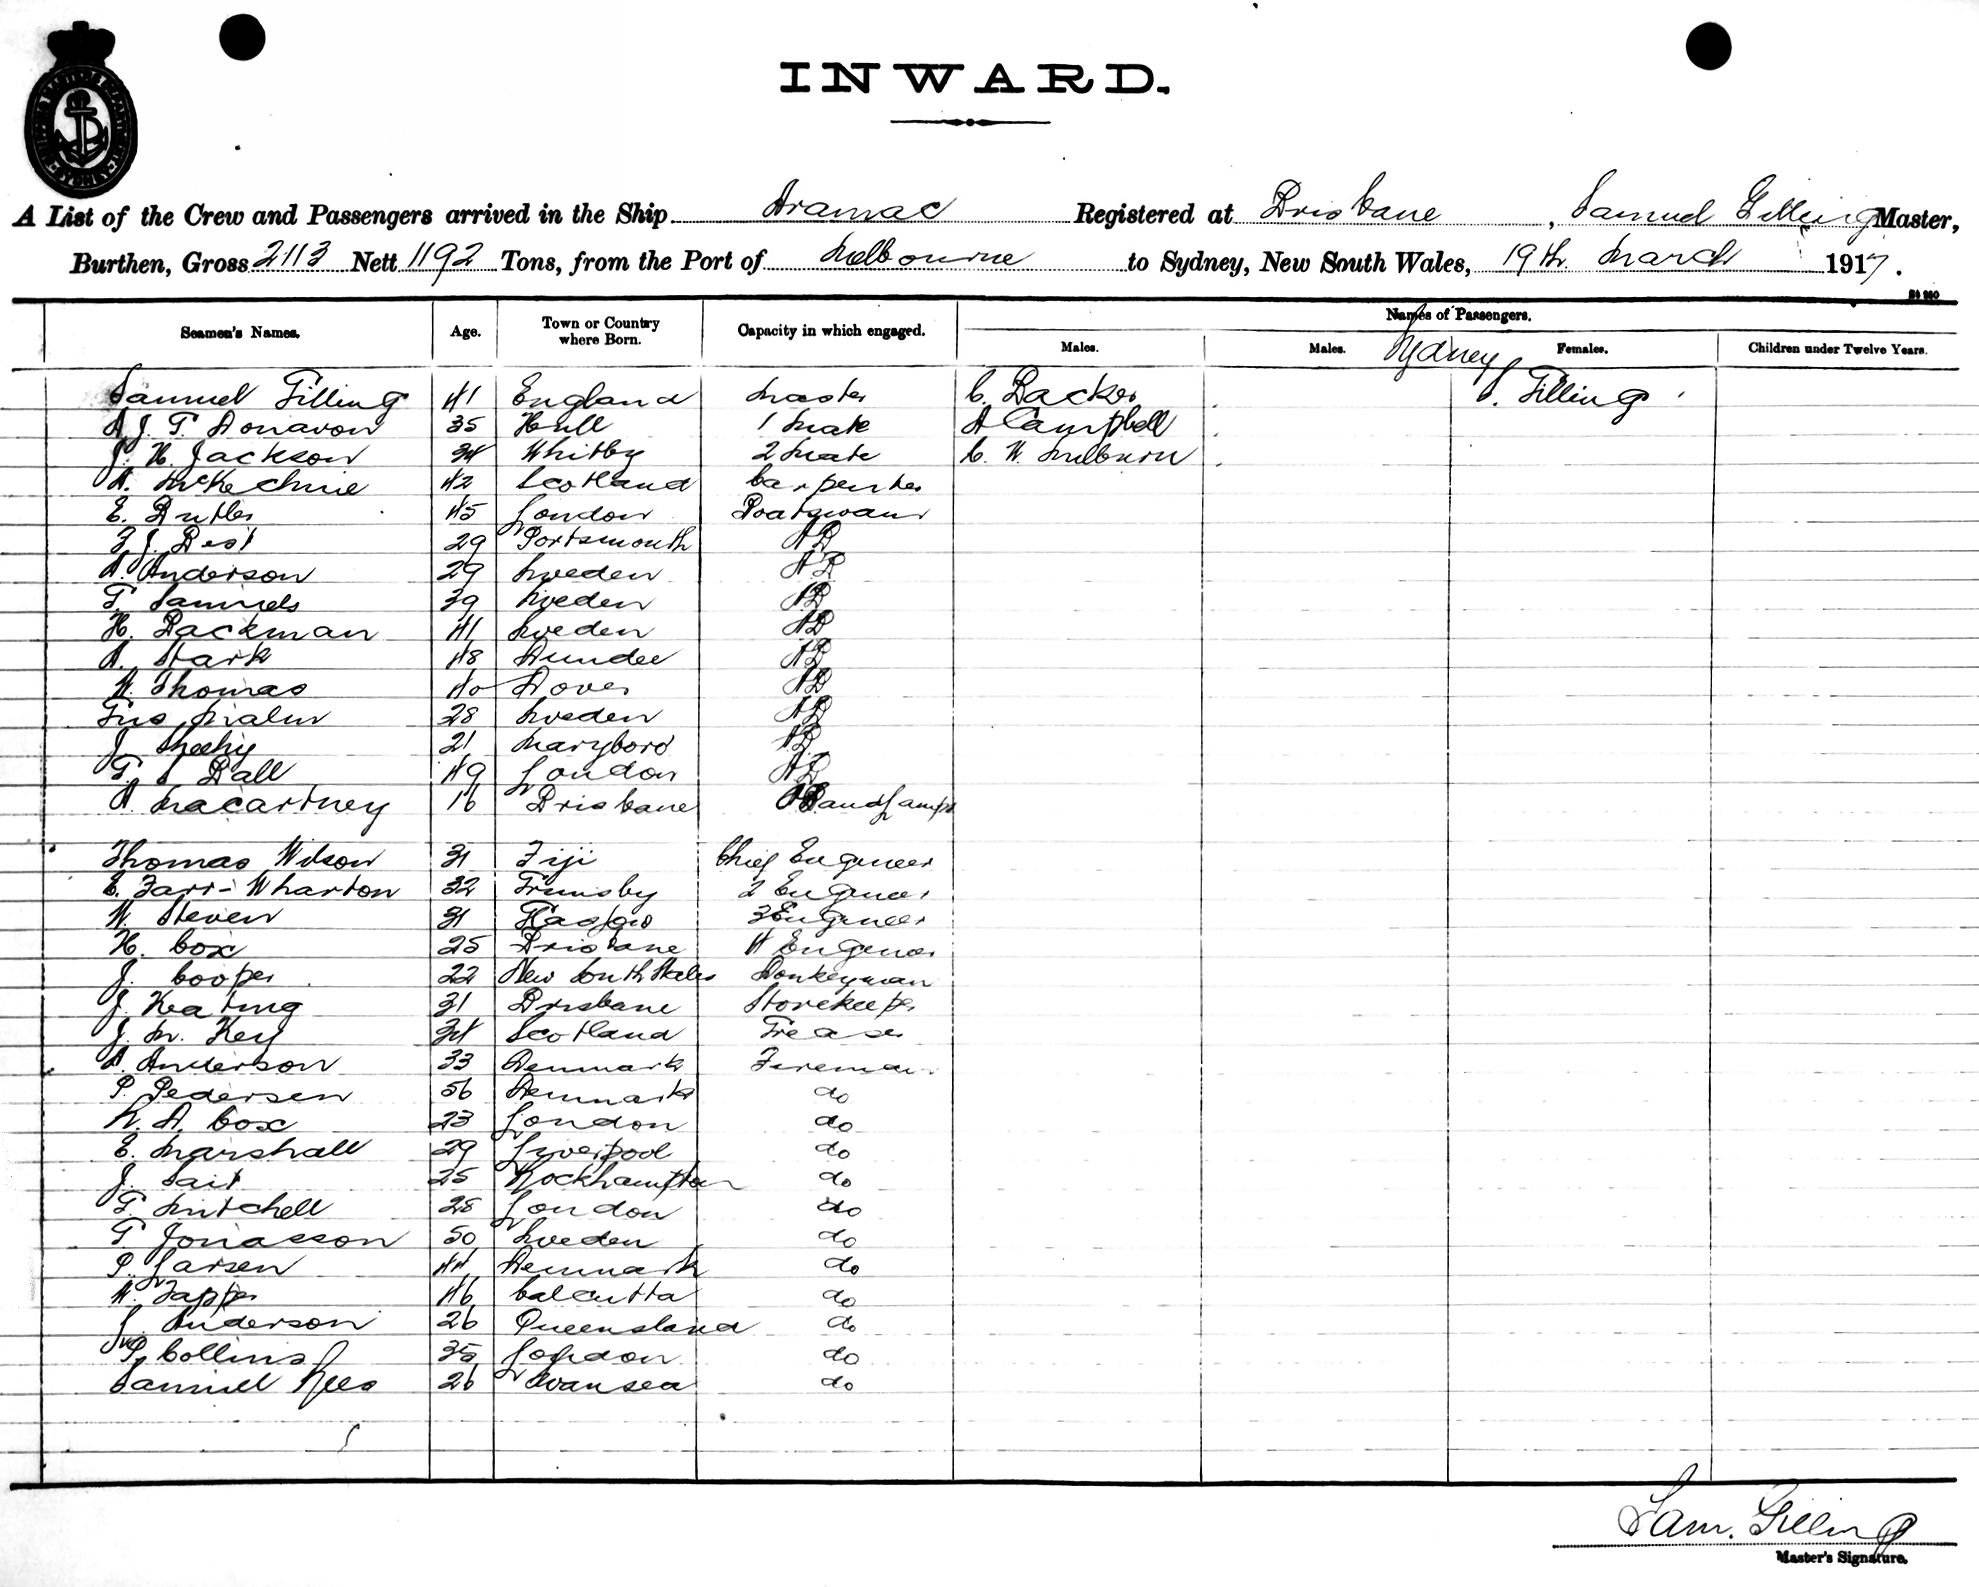 INWARD.
A List of the Crew and Passengers arrived in the Ship Aramac Registered at Brisbane, Samuel Gilling Master,
Burthen, Gross 2113 Nett 1192 Tons, from the Port of Melbourne to Sydney, New South Wales, 19th March 1917.
Names of Passengers.
Seamen's Names. Age. Town or Country where Born. Capacity in which engaged. Males. Males. Sydney Females. Children under Twelve Years.
Samuel Gilling 41 England Master C. Backer S. Gilling
A J. G. Donavon 35 Hull 1 Mate A Campbell
J. H. Jackson 34 Whitby 2 Mate C. W. Milburn
A. McKechnie 42 Scotland Carpenter
E. Butler 45 London Boatswain
F. J. Best 29 Portsmouth AB
A. Anderson 29 Sweden AB
G. Samuels 39 Sweden AB
H. Backman 41 Sweden AB
A. Stark 48 Dundee AB
W. Thomas 40 Dover AB
Gus Malm 28 Sweden AB
J. Sheehy 21 Maryboro AB
G. S Ball 49 London AB
A. Macartney 16 Brisbane and Lamps
Thomas Wilson 31 Fiji Chief Engineer
E. Farr-Wharton 32 Grimsby 2 Engineer
W Steven 31 Glasgow 3 Engineer
H. Cox 25 Brisbane 4 Engineer
J. Cooper 22 New South Wales Donkeyman
J. Keating 31 Brisbane Storekeeper
J. M. Key 34 Scotland Greaser
A. Anderson 33 Denmark Fireman
P. Pedersen 56 Denmark do
A. Cox 23 London do
E. Marshall 29 Liverpool do
J. Tait 25 Rockhampton do
G. Mitchell 28 London do
G Jonasson 50 Sweden do
P. Larsen 44 Denmark do
W. Tapper 46 Calcutta do
J. Anderson 26 Queensland do
P. Collins 35 London do
Samuel Rees 26 Swansea do
Sam. Gilling
Master's Signature.